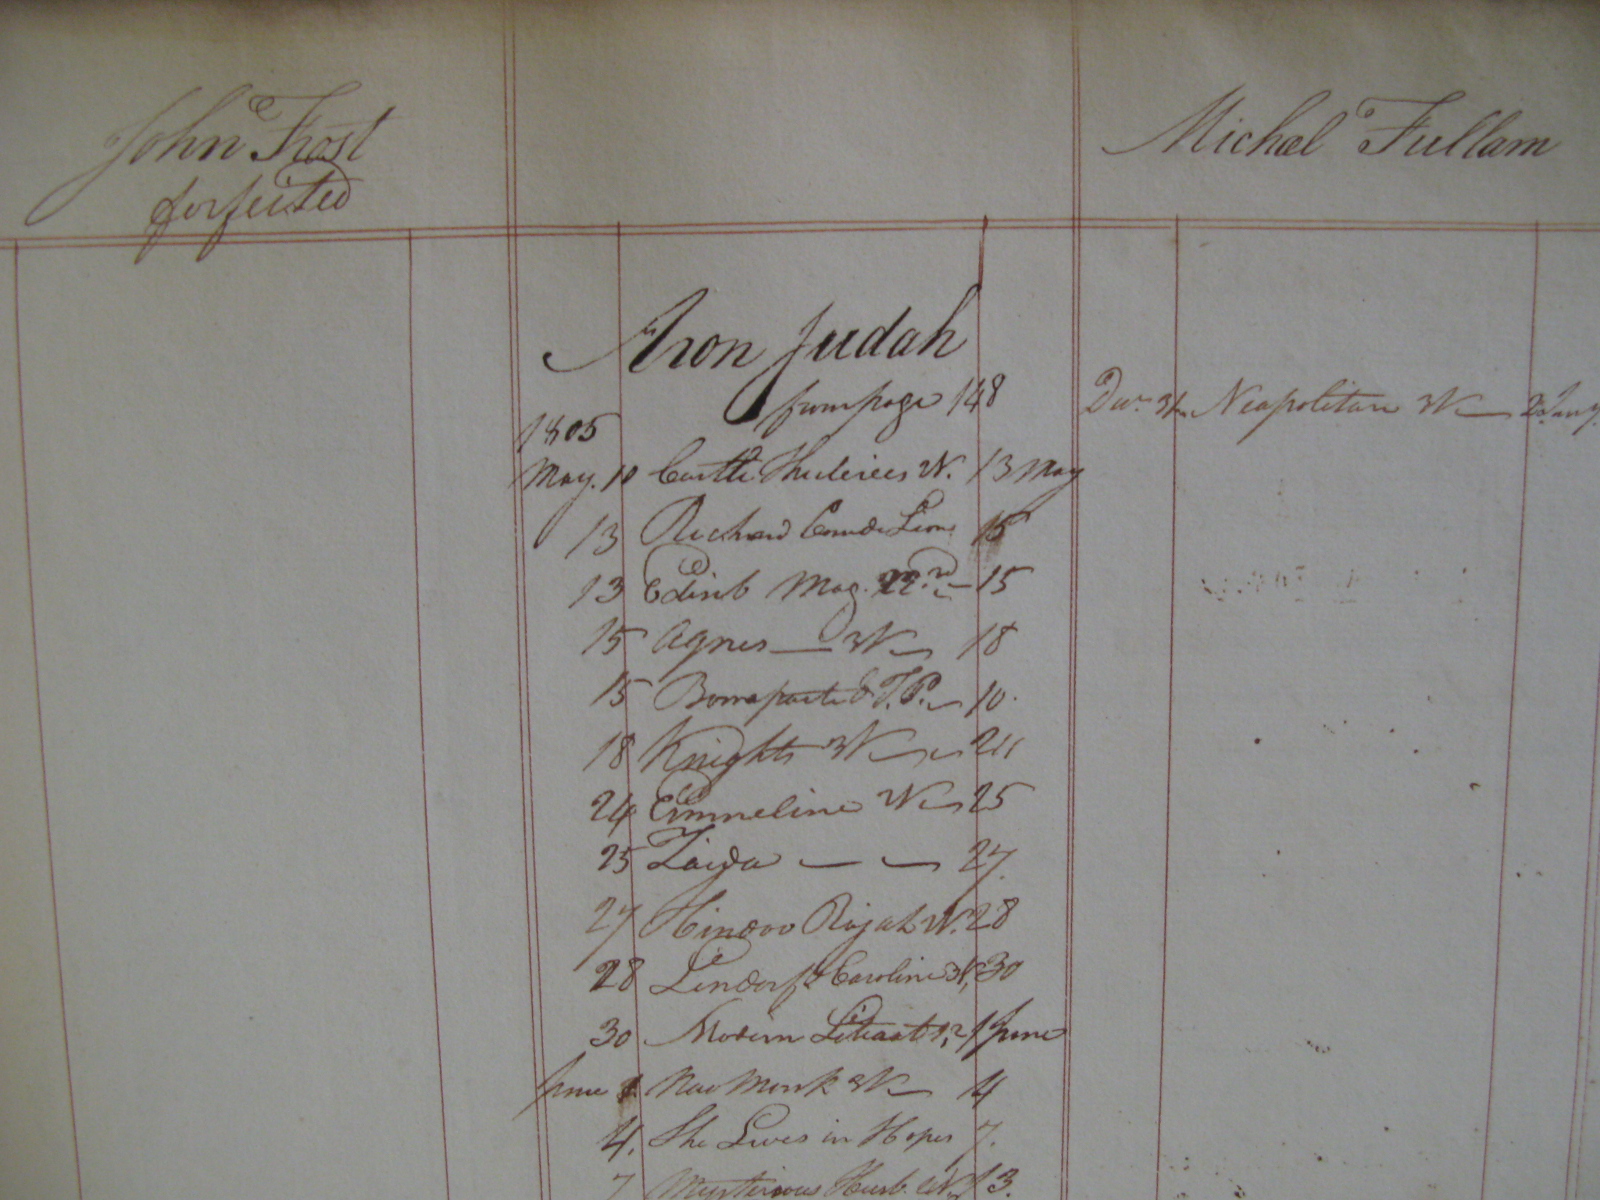 John Frost
forfeited
Michael Fullam
Aron Judah
from page 148
Dec. 31 Neapolitan W 2 Jany.
1805
May. 10 Castle Thuleries W. 13 May
13 Richard Coeur de Lion 15
13 Edinb Mag. 22nd 15
15 Agnes W 18
15 Bonaparte T.P. 10.
18 Knights W 24
24 Emmeline W 25
25 Zaida 27.
27 Hindoo Rajah W. 28
28 Lindorf & Caroline W, 30
30 Modern Literat 1, 2 1 June
June 1 New Monk W 4
4. She Lives in Hopes 7.
7 Mysterious Husb. W. 13.